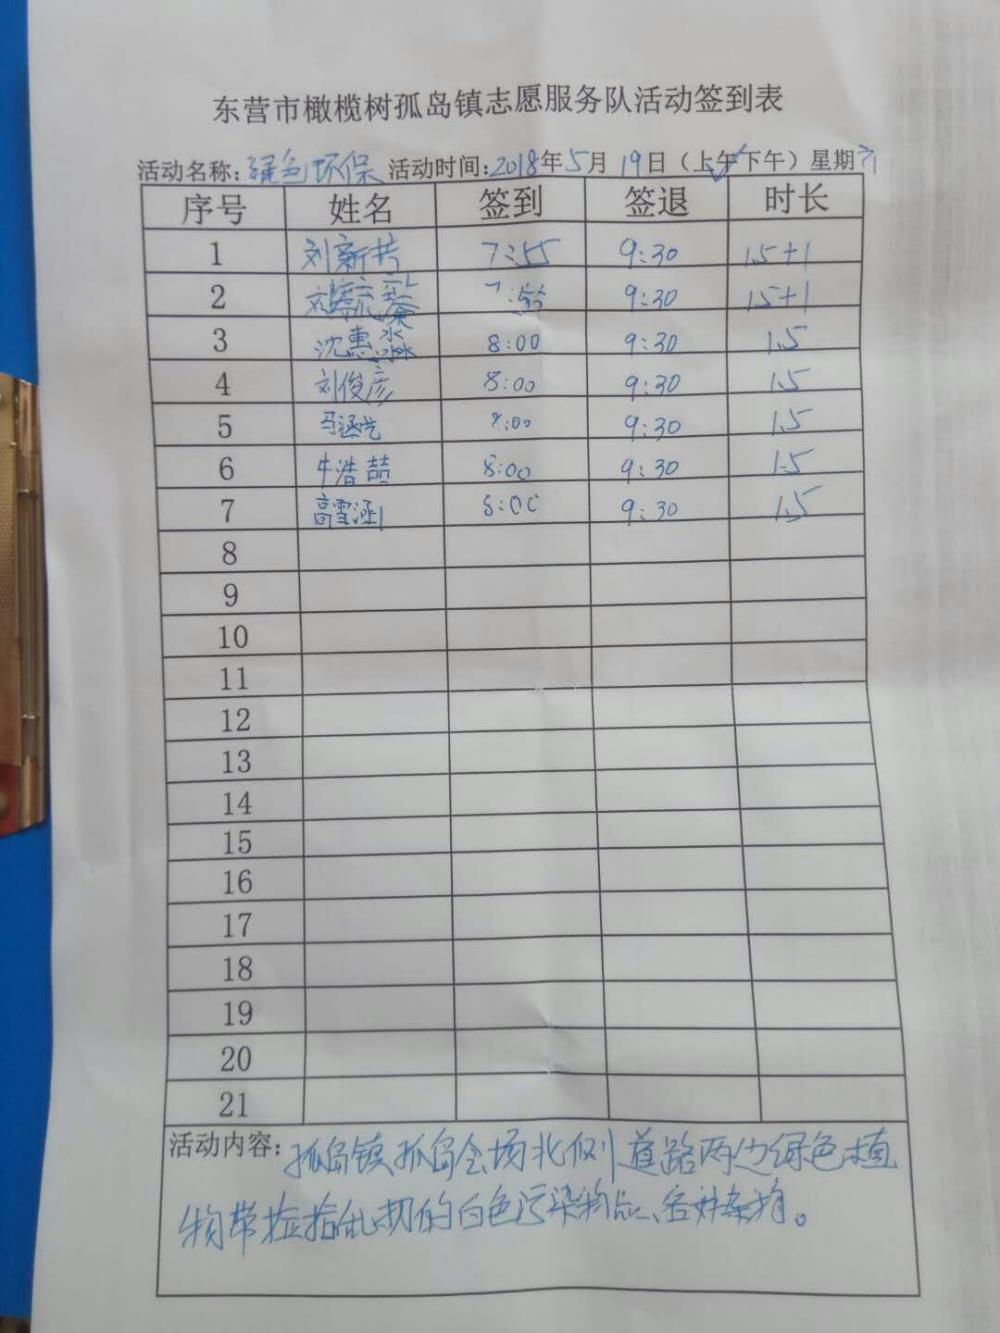 东营市橄榄树孤岛镇志愿服务队活动签到表
活动名称:绿色环保 活动时间:2018年5月19日（上午✓下午）星期六
序号 姓名 签到 签退 时长
1 刘新芳 7:55 9:30 1.5+1
2 7:55 9:30 1.5+1
3 沈惠淼 8:00 9:30 1.5
4 刘俊彦 8:00 9:30 1.5
5 马涵艺 8:00 9:30 1.5
6 牛浩喆 8:00 9:30 1.5
7 高雪涵 8:00 9:30 1.5
8
9
10
11
12
13
14
15
16
17
18
19
20
21
活动内容:孤岛镇孤岛会场北侧道路两边绿色植
物带捡拾乱扔的白色污染物品、各种杂物。